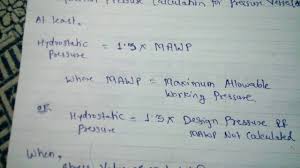 Pressure Calculation for Pressure Vessels
At least.
Hydrostatic Pressure = 1.5 × MAWP
Where MAWP = Maximum Allowable
Working Pressure
OR
Hydrostatic Pressure = 1.5 × Design Pressure If
MAWP Not Calculated
When,